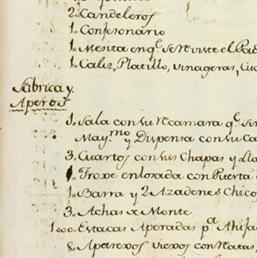 2. Candeleros
1. Confesonario
1. Menta en q.e Se Reviste el Pad
1. Caliz, Platillo, vinageras, Cu
Fabrica y
Aperos
1. Sala con su Recamara q.e Si
May.mo y Dispensa con su Ca
3. Cuartos con sus Chapas y Lla
1. Troxe enlosada con Puerta d
1. Barra y 2 Azadones Chico
3. Achas de Monte
1000. Estacas Aperadas p.a Ahija
8. Aparexos viexos con Reatas,